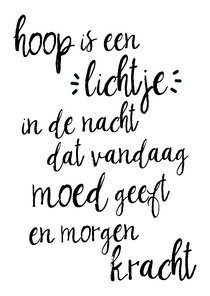 hoop is een
lichtje
in de nacht
dat vandaag
moed geeft
en morgen
kracht